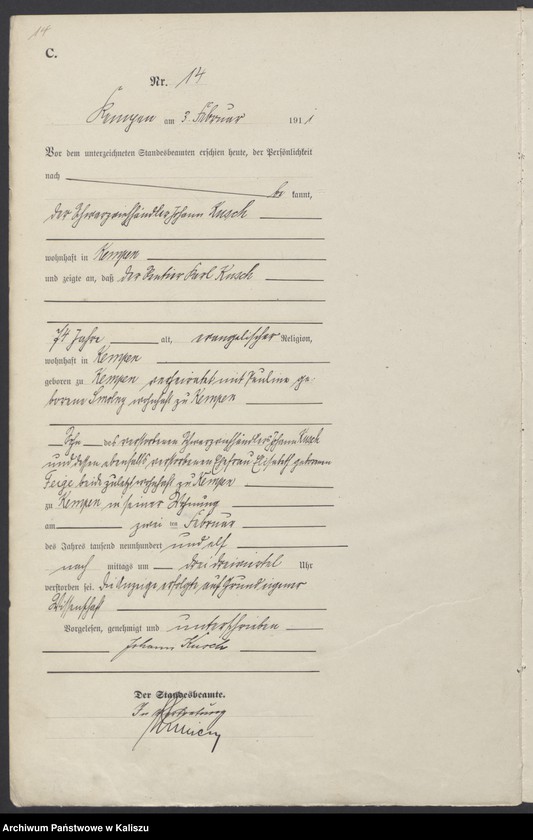 14
C.
Nr. 14
Kempen am 3. Februar 1911
Vor dem unterzeichneten Standesbeamten erschien heute, der Persönlichkeit
nach be kannt,
der Schwarzviehhändler Johann Kusch
wohnhaft in Kempen
und zeigte an, daß der Rentier Karl Kusch
74 Jahre alt, evangelischer Religion,
wohnhaft in Kempen
geboren zu Kempen verheiratet mit Pauline ge-
borene Smolny wohnhaft zu Kempen
Sohn des verstorbenen Schwarzviehhändlers Johann Kusch
und dessen ebenfalls verstorbenen Ehefrau Elisabeth geborenen
Feige beide zuletzt wohnhaft zu Kempen
zu Kempen in seiner Wohnung
am zwei ten Februar
des Jahres tausend neunhundert und elf
nach mittags um drei dreiviertel Uhr
verstorben sei. Die Anzeige erfolgte auf Grund eigener
Wissenschaft
Vorgelesen, genehmigt und unterschrieben
Johann Kusch
Der Standesbeamte.
In Vertretung
Archiwum Państwowe w Kaliszu